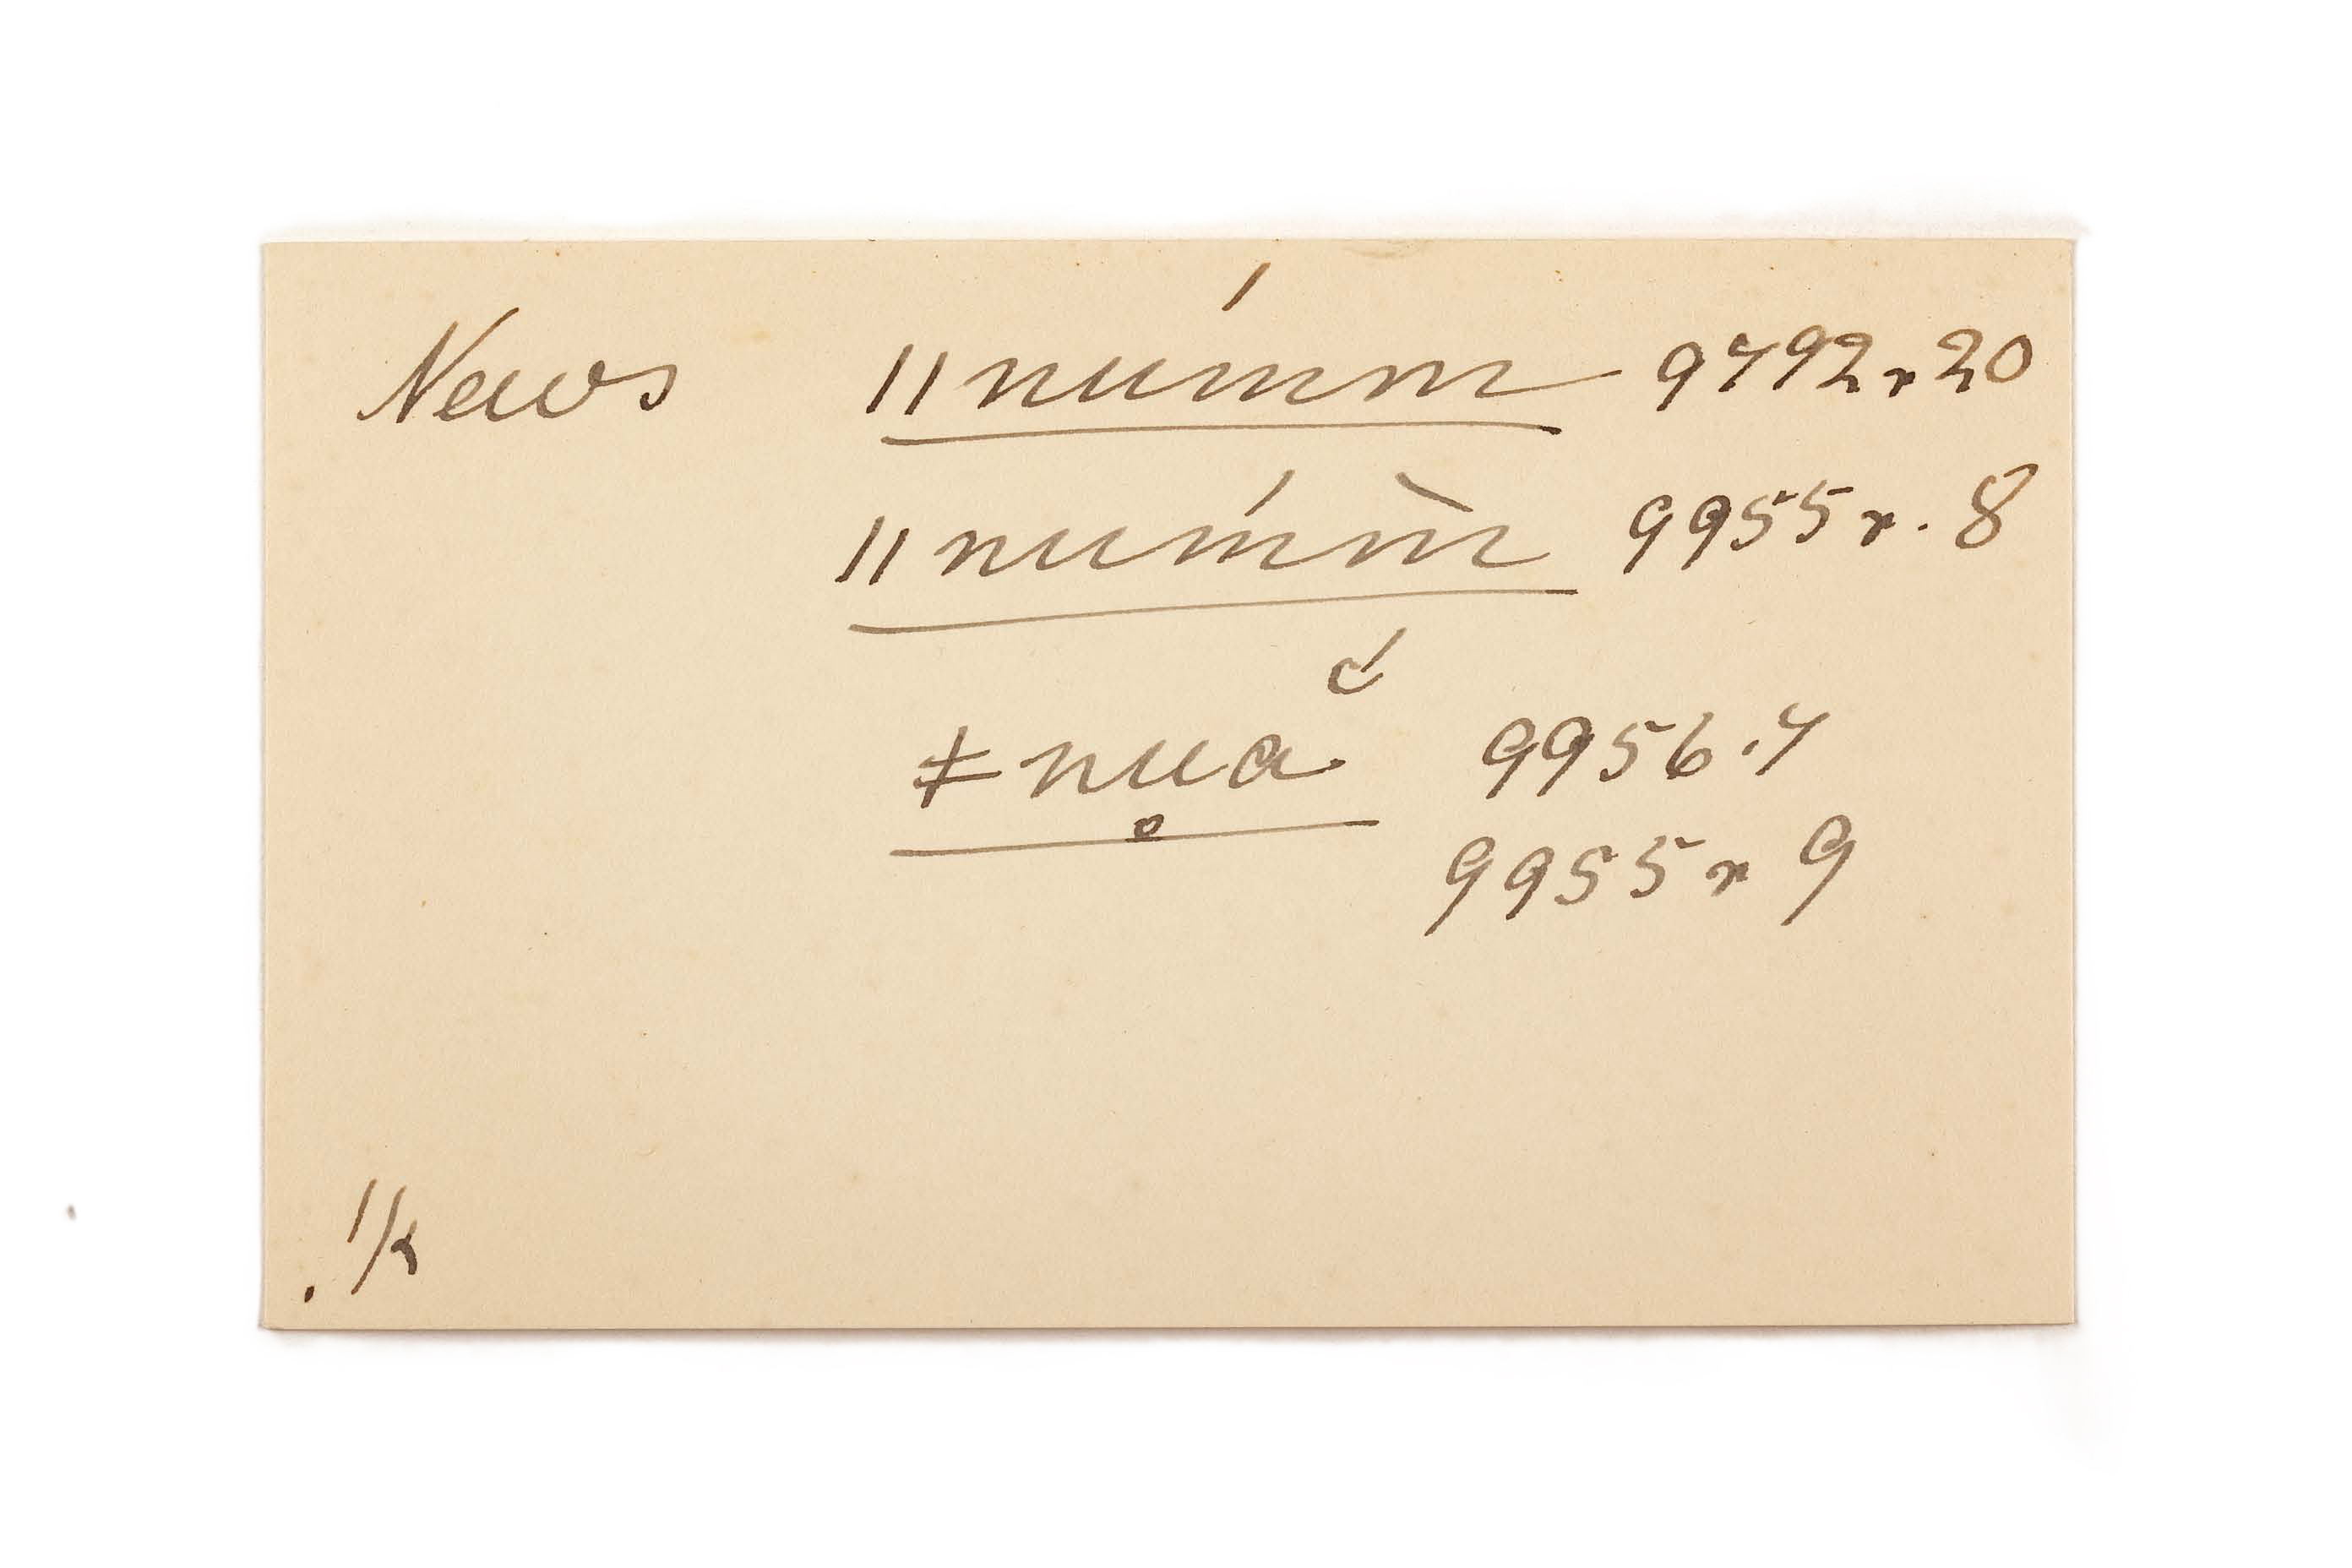 News ǁnum̍m 9792r.20
ǁnum̍m̀ 9955r.8
ǂnu̥a 9956.7
9955r 9